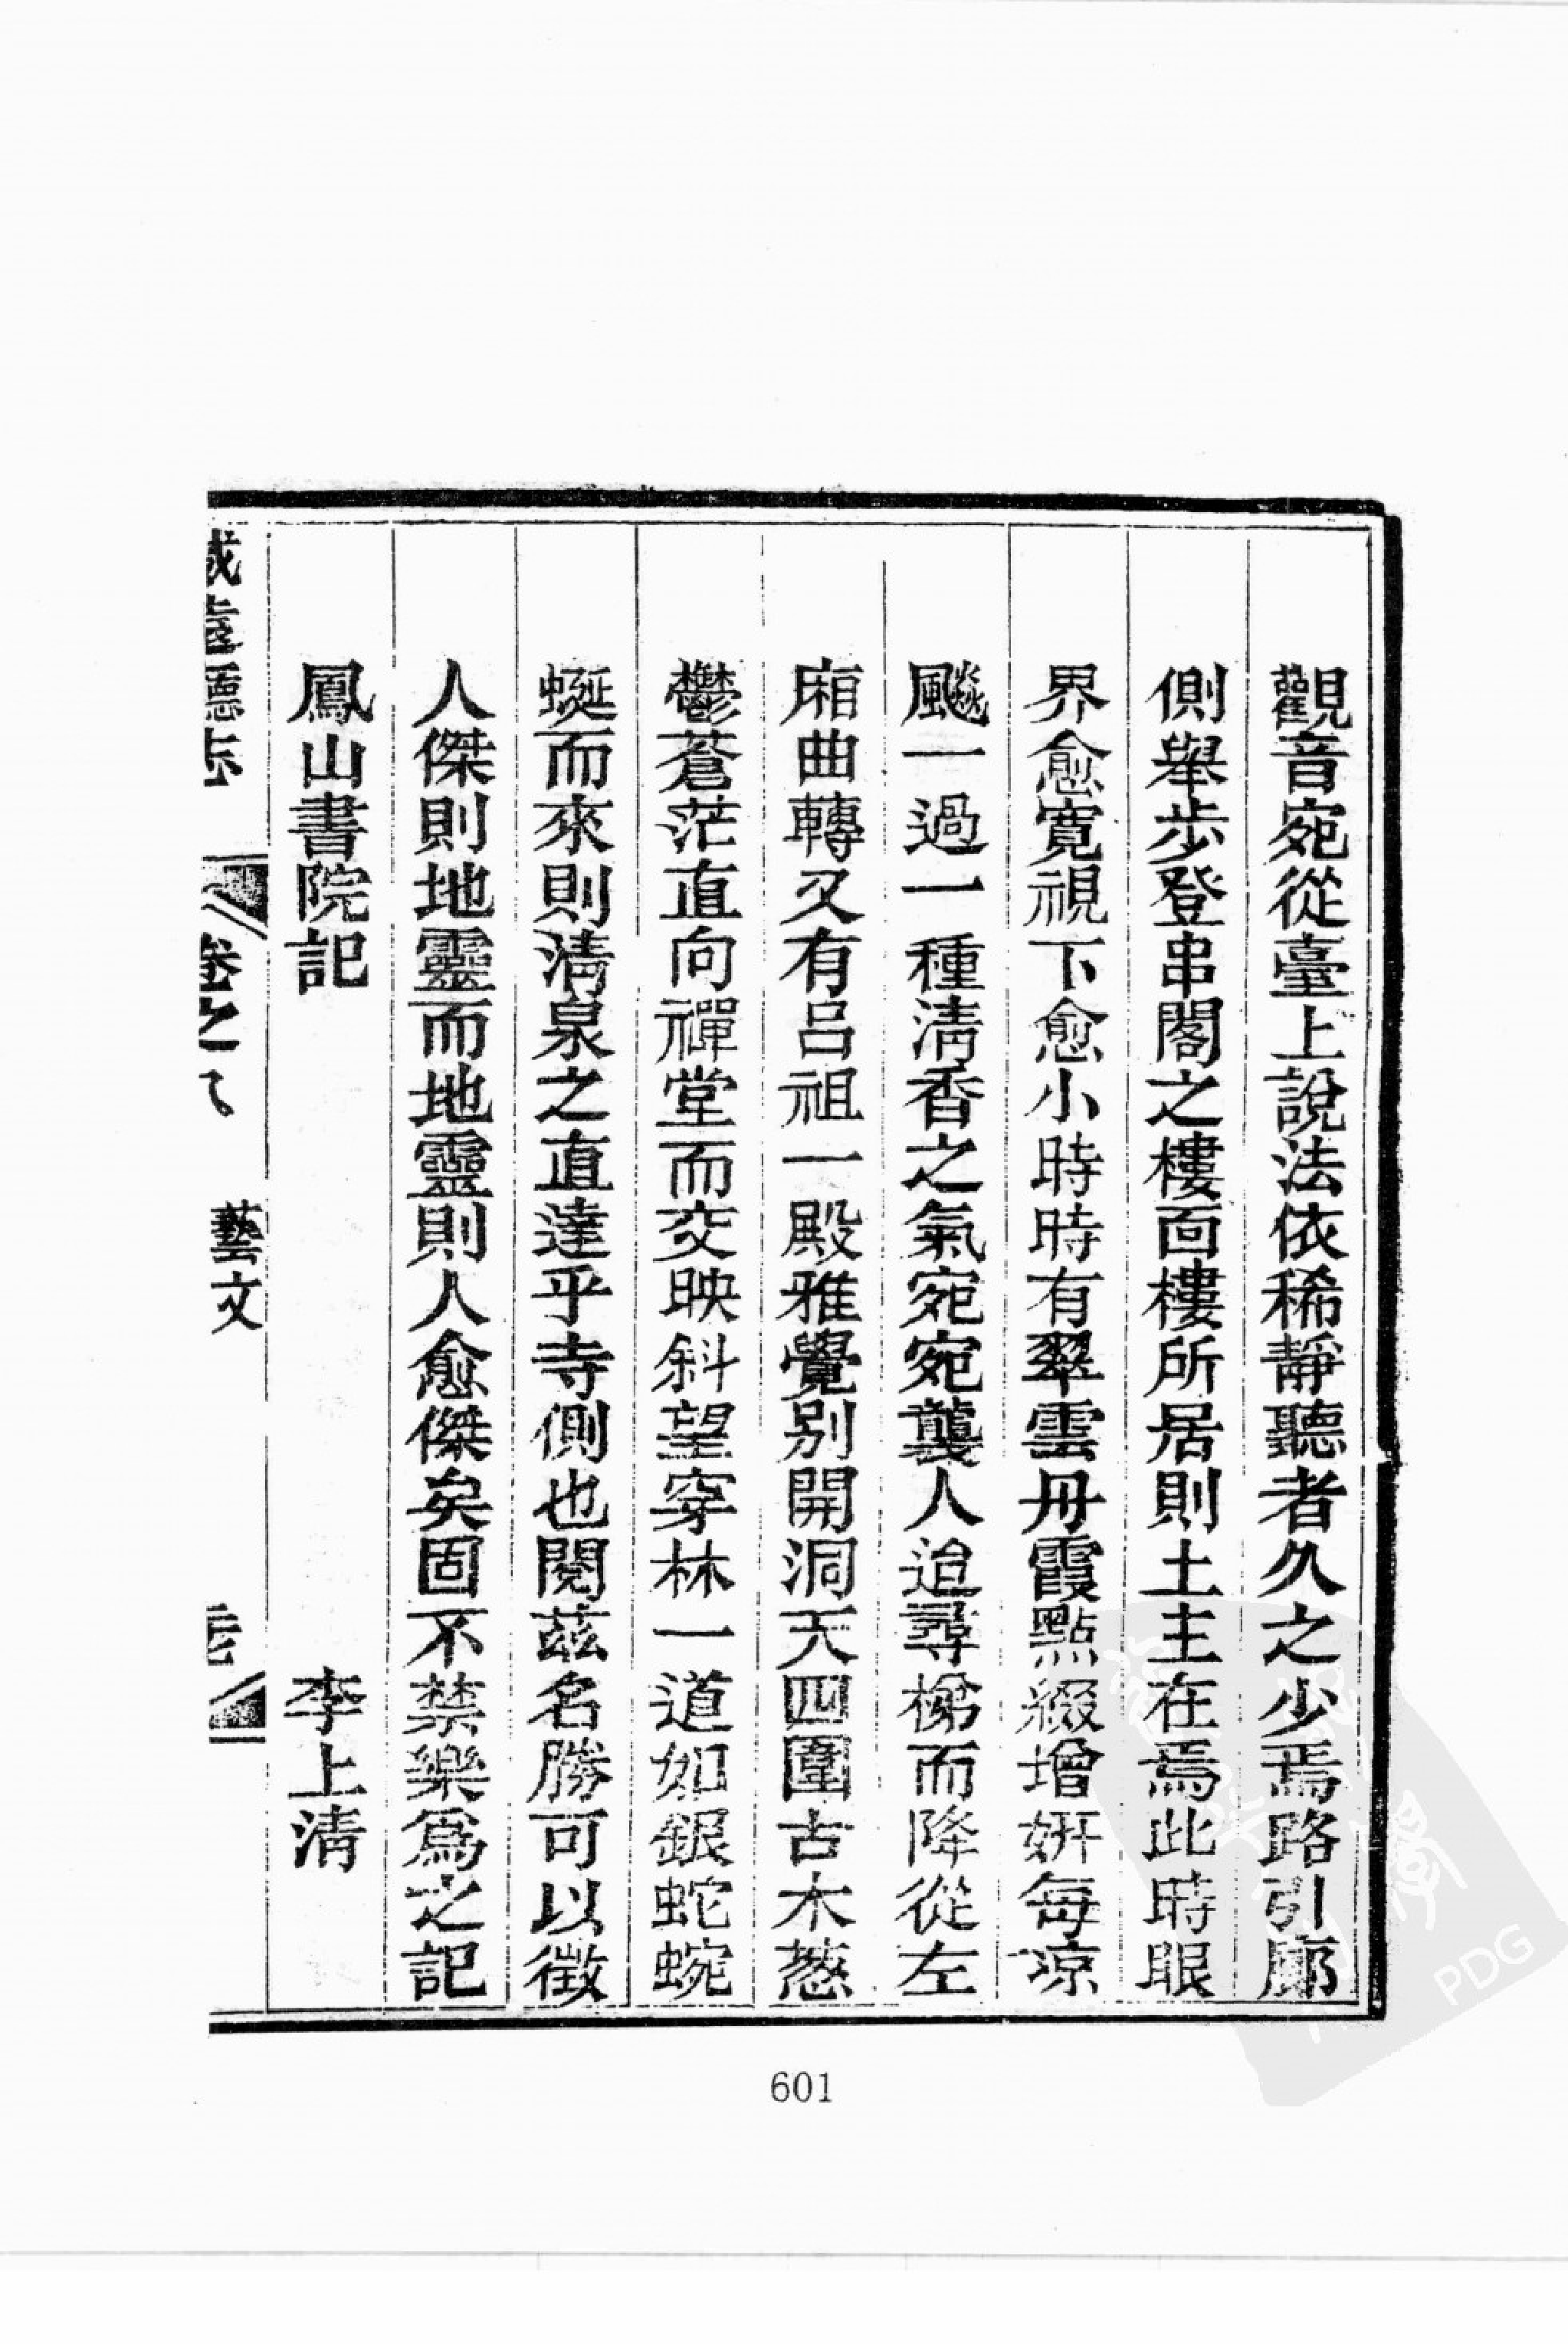 觀音宛從臺上說法依稀靜聽者久之少焉路引廊
側舉步登串閣之樓面樓所居則土主在焉此時眼
界愈寬視下愈小時時有翠雲丹霞點綴增妍每凉
飈一過一種清香之氣宛宛襲人迨尋梯而降從左
廂曲轉又有呂祖一殿雅覺別開洞天四圍古木葱
鬱蒼茫直向禪堂而交映斜望穿林一道如銀蛇蜿
蜒而來則清泉之直達乎寺側也閱茲名勝可以徵
人傑則地靈而地靈則人愈傑矣固不禁樂爲之記
鳳山書院記 李上清
威遠廳志 卷之八 藝文
601
PDG